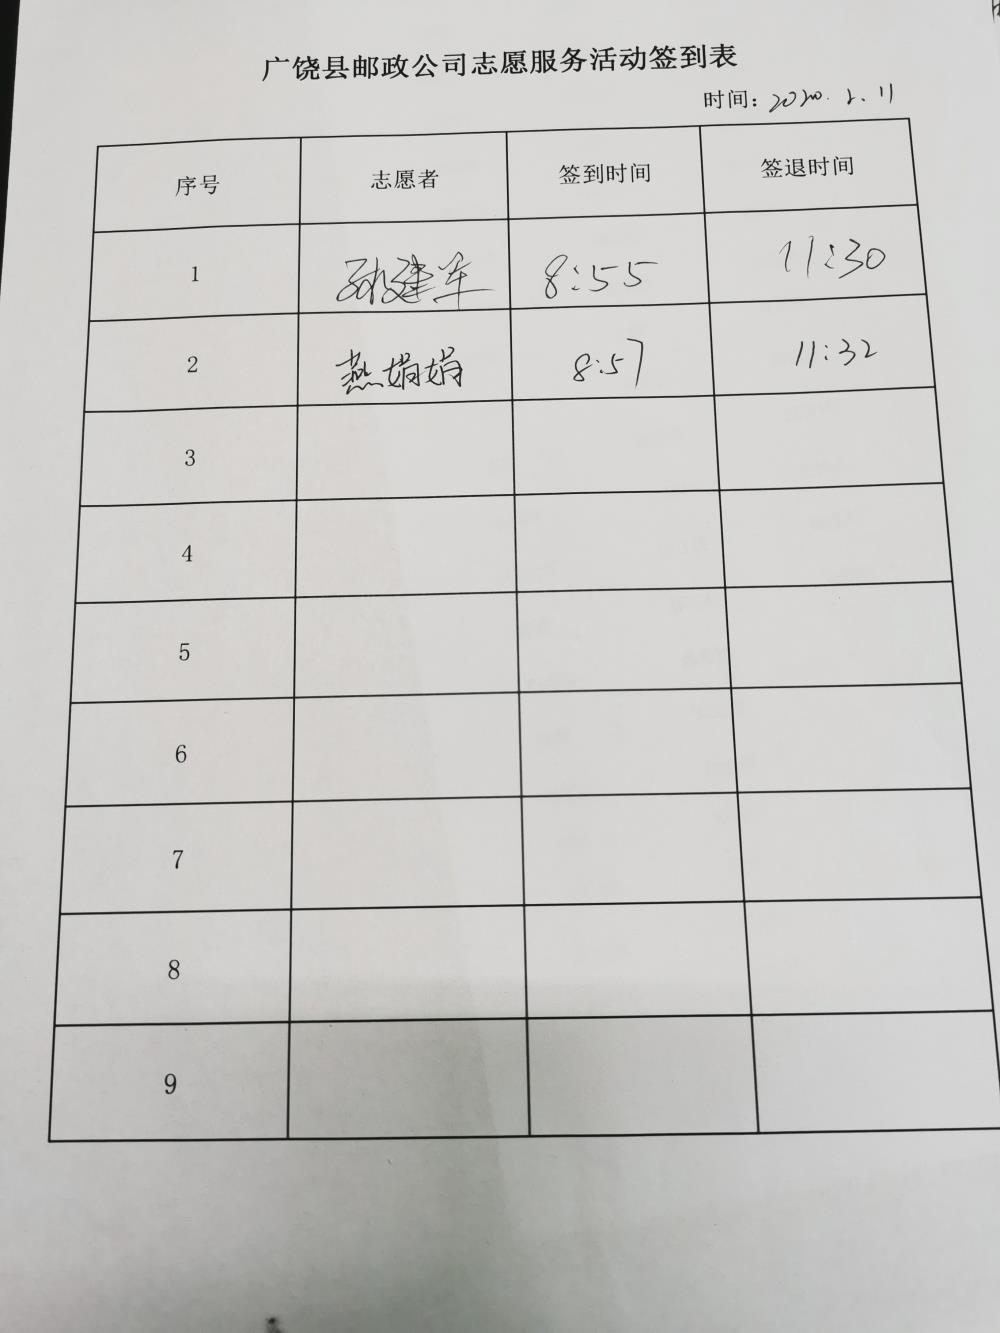 广饶县邮政公司志愿服务活动签到表
时间：2020.2.11
序号 志愿者 签到时间 签退时间
1 建军 8:55 11:30
2 燕娟娟 8:57 11:32
3
4
5
6
7
8
9